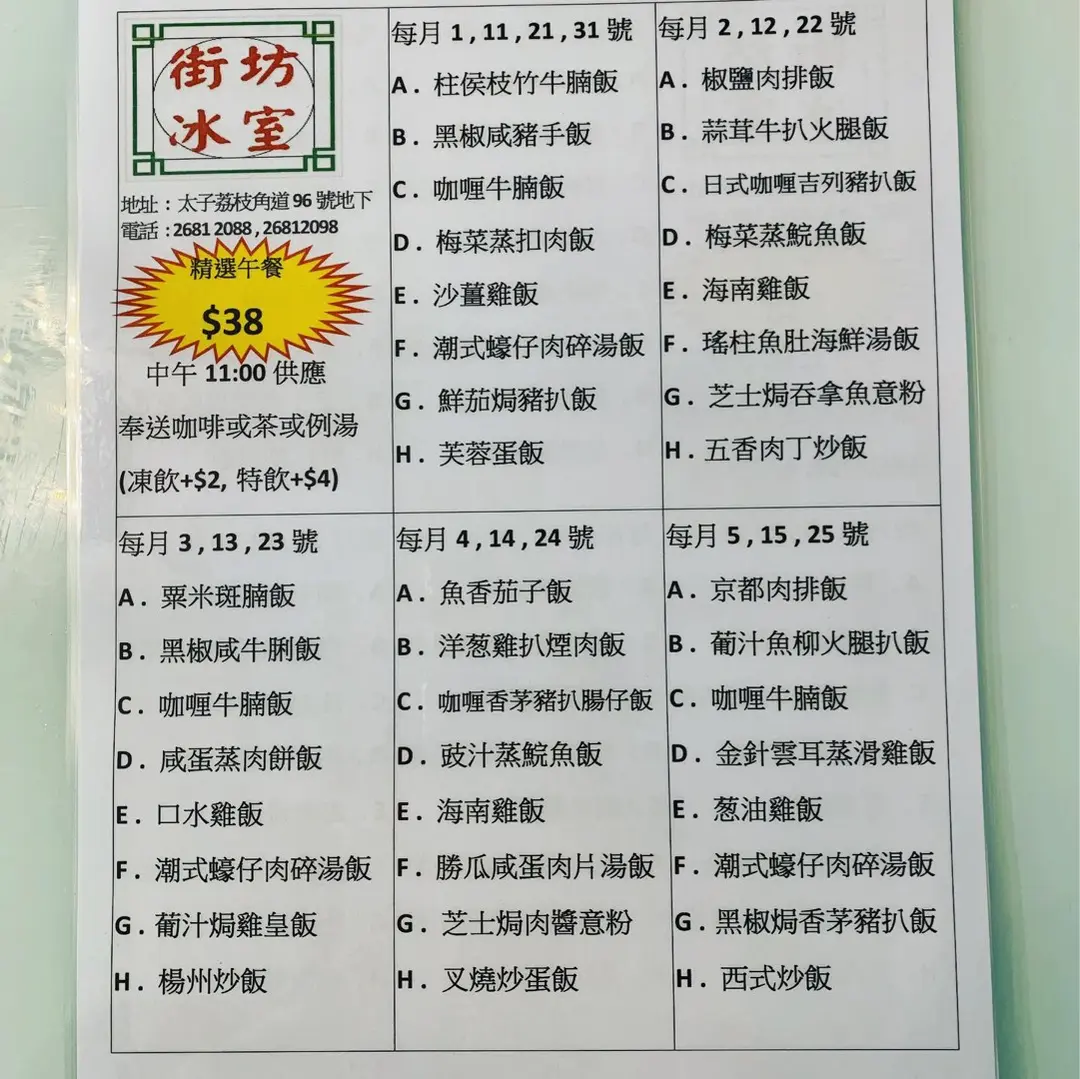 街坊
冰室
地址：太子荔枝角道 96 號地下
電話：2681 2088 , 26812098
精選午餐
$38
中午 11:00 供應
奉送咖啡或茶或例湯
(凍飲+$2, 特飲+$4)
每月 1 , 11 , 21 , 31 號
A . 柱侯枝竹牛腩飯
B . 黑椒咸豬手飯
C . 咖喱牛腩飯
D . 梅菜蒸扣肉飯
E . 沙薑雞飯
F . 潮式蠔仔肉碎湯飯
G . 鮮茄焗豬扒飯
H . 芙蓉蛋飯
每月 2 , 12 , 22 號
A . 椒鹽肉排飯
B . 蒜茸牛扒火腿飯
C . 日式咖喱吉列豬扒飯
D . 梅菜蒸鯇魚飯
E . 海南雞飯
F . 瑤柱魚肚海鮮湯飯
G . 芝士焗吞拿魚意粉
H . 五香肉丁炒飯
每月 3 , 13 , 23 號
A . 粟米斑腩飯
B . 黑椒咸牛脷飯
C . 咖喱牛腩飯
D . 咸蛋蒸肉餅飯
E . 口水雞飯
F . 潮式蠔仔肉碎湯飯
G . 葡汁焗雞皇飯
H . 楊州炒飯
每月 4 , 14 , 24 號
A . 魚香茄子飯
B . 洋葱雞扒煙肉飯
C . 咖喱香茅豬扒腸仔飯
D . 豉汁蒸鯇魚飯
E . 海南雞飯
F . 勝瓜咸蛋肉片湯飯
G . 芝士焗肉醬意粉
H . 叉燒炒蛋飯
每月 5 , 15 , 25 號
A . 京都肉排飯
B . 葡汁魚柳火腿扒飯
C . 咖喱牛腩飯
D . 金針雲耳蒸滑雞飯
E . 葱油雞飯
F . 潮式蠔仔肉碎湯飯
G . 黑椒焗香茅豬扒飯
H . 西式炒飯